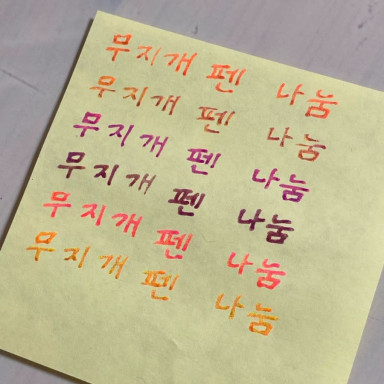 무지개 펜 나눔
무지개 펜 나눔
무지개 펜 나눔
무지개 펜 나눔
무지개 펜 나눔
무지개 펜 나눔